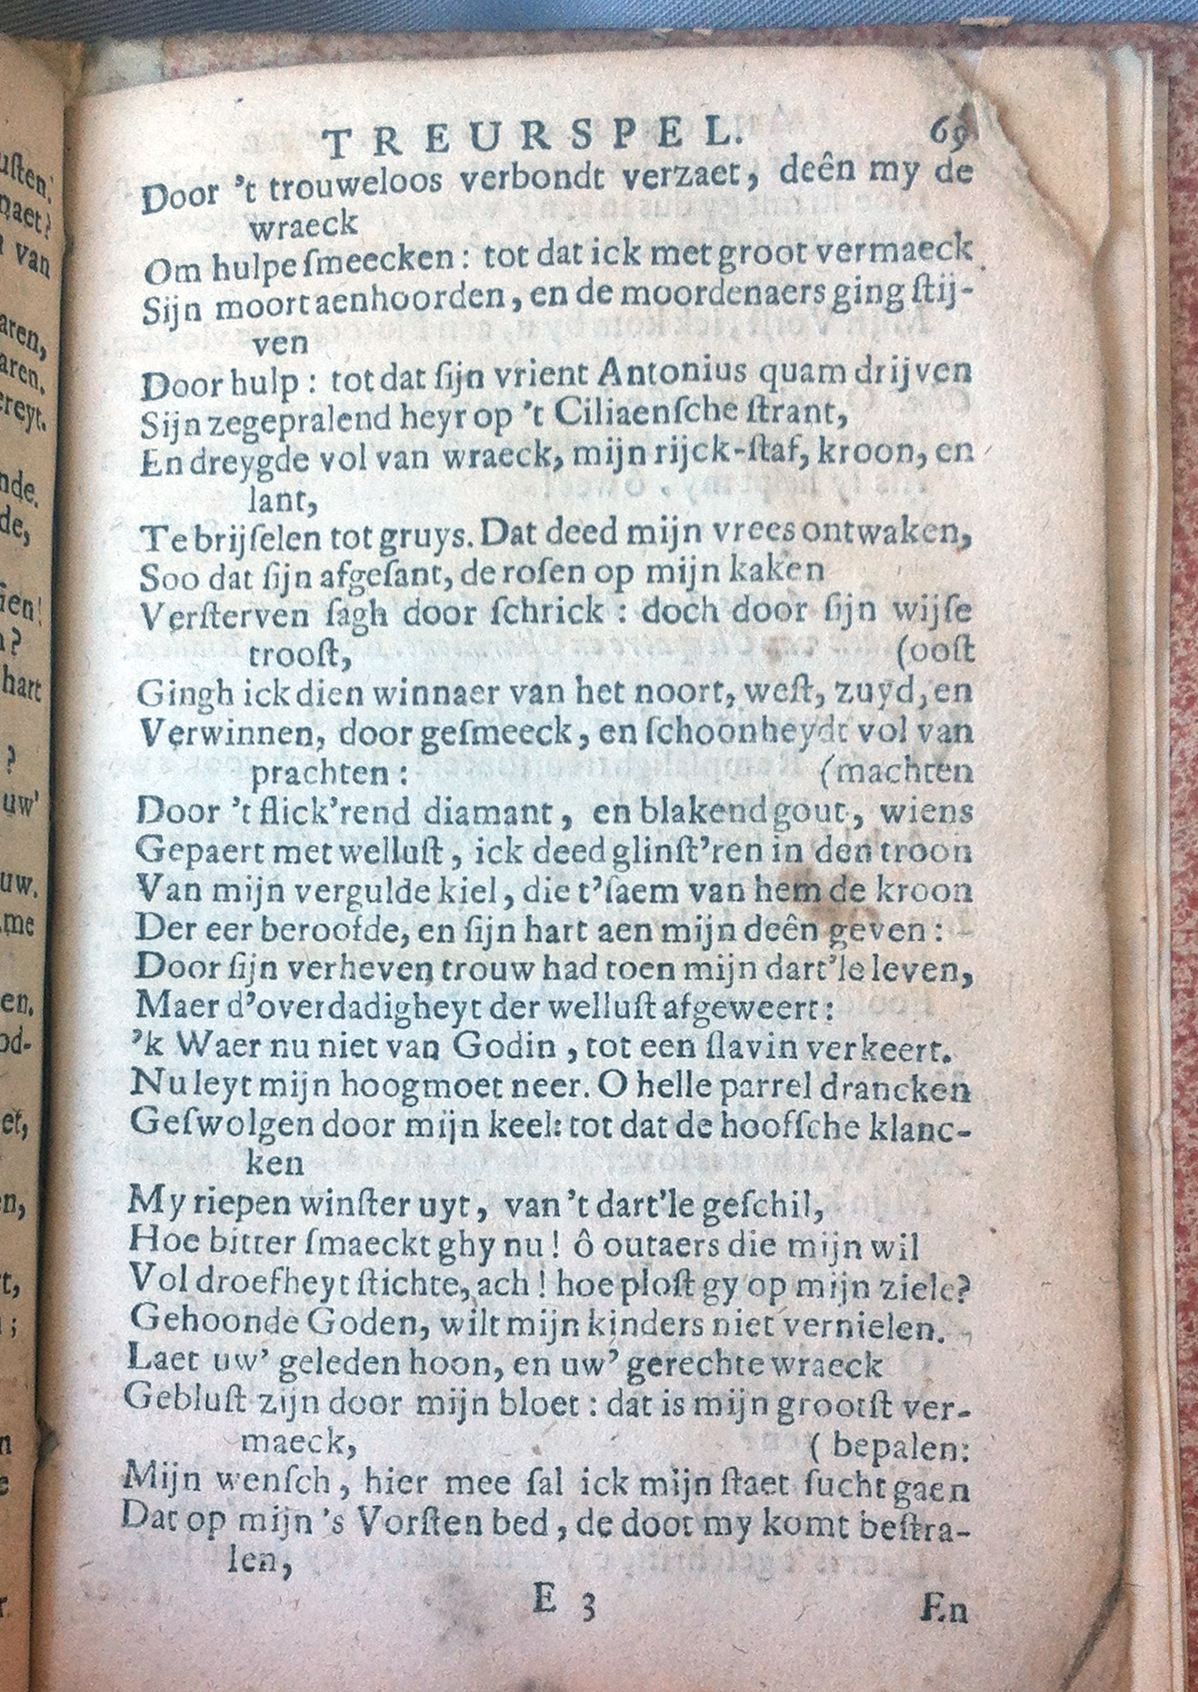 TREURSPEL. 69
Door 't trouweloos verbondt verzaet, deên my de
wraeck
Om hulpe ſmeecken: tot dat ick met groot vermaeck
Sijn moort aenhoorden, en de moordenaers ging ſtij-
ven
Door hulp: tot dat ſijn vrient Antonius quam drijven
Sijn zegepralend heyr op 't Ciliaenſche ſtrant,
En dreygde vol van wraeck, mijn rijck-ſtaf, kroon, en
lant,
Te brijſelen tot gruys. Dat deed mijn vrees ontwaken,
Soo dat ſijn afgeſant, de roſen op mijn kaken
Verſterven ſagh door ſchrick: doch door ſijn wijſe
trooſt, (ooſt
Gingh ick dien winnaer van het noort, weſt, zuyd, en
Verwinnen, door geſmeeck, en ſchoonheydt vol van
prachten: (machten
Door 't flick'rend diamant, en blakend gout, wiens
Gepaert met welluſt, ick deed glinſt'ren in den troon
Van mijn vergulde kiel, die t'ſaem van hem de kroon
Der eer beroofde, en ſijn hart aen mijn deên geven:
Door ſijn verheven trouw had toen mijn dart'le leven,
Maer d'overdadigheyt der welluſt afgeweert:
'k Waer nu niet van Godin, tot een ſlavin verkeert.
Nu leyt mijn hoogmoet neer. O helle parrel drancken
Geſwolgen door mijn keel: tot dat de hoofſche klanc-
ken
My riepen winſter uyt, van 't dart'le geſchil,
Hoe bitter ſmaeckt ghy nu! ô outaers die mijn wil
Vol droefheyt ſtichte, ach! hoe ploſt gy op mijn ziele?
Gehoonde Goden, wilt mijn kinders niet vernielen.
Laet uw' geleden hoon, en uw' gerechte wraeck
Gebluſt zijn door mijn bloet: dat is mijn grootſt ver-
maeck, (bepalen:
Mijn wenſch, hier mee ſal ick mijn ſtaet ſucht gaen
Dat op mijn 's Vorſten bed, de doot my komt beſtra-
len,
E 3 En